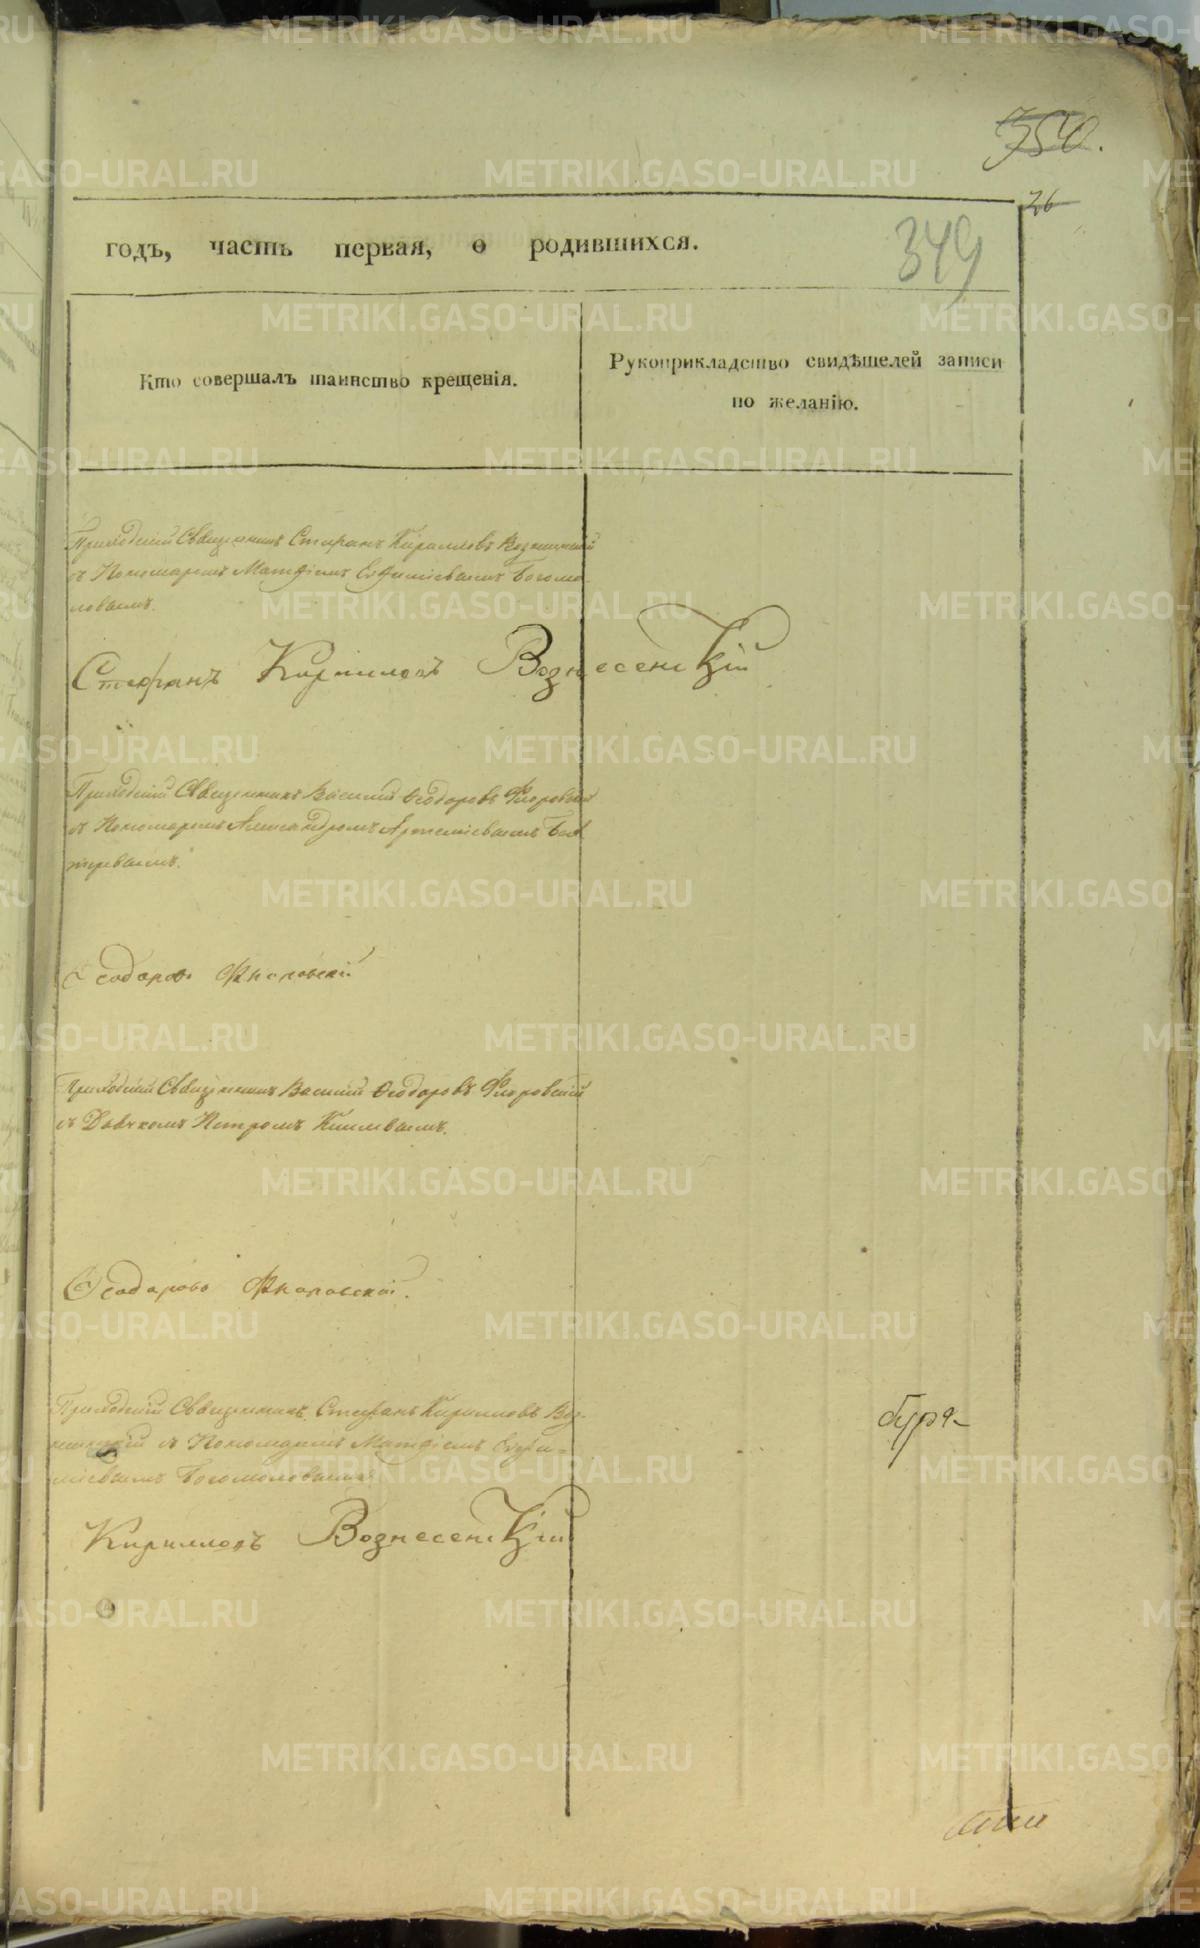 350.
26
349
годъ, часть первая, о родившихся.
Кто совершалъ таинство крещенія.
Рукоприкладство свидѣтелей записи
по желанію.
Приходскій Священникъ Стефанъ Кирилловъ
съ Пономаремъ Матфіемъ Евфиміевымъ Богомо-
ловымъ.
Стефанъ Кирилловъ Вознесенскій
Приходскій Священникъ Василій Ѳеодоровъ Флоровскій
съ Пономаремъ Александромъ Артеміевымъ
Ѳеодоровъ Флоровскій
Приходскій Священникъ Василій Ѳеодоровъ Флоровскій
съ Дьячкомъ Петромъ
Ѳеодоровъ Флоровскій.
Приходскій Священникъ Стефанъ Кирилловъ Воз-
съ Пономаремъ Матфіемъ Евфи-
міевымъ Богомоловымъ
Кирилловъ Вознесенскій
METRIKI.GASO-URAL.RU